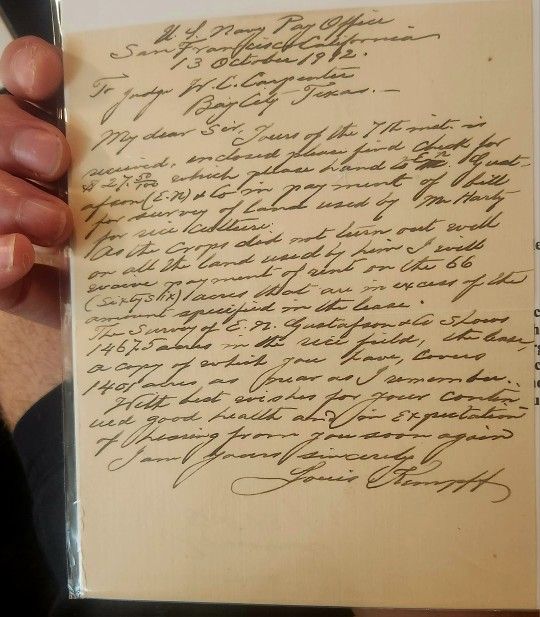 U. S. Navy Pay Office
San Francisco California
13 October 1912.
To Judge W. C. Carpenter
Bay City Texas.—
My dear Sir, Yours of the 7th inst. is
received, enclosed please find check for
$27 50/100 which please hand to E. N. Gust-
afson (E. N) & Co in payment of bill
for survey of land used by Mr Harty
for rice culture.
As the crops did not turn out well
on all the land used by him I will
waive payment of rent on the 66
(Sixty Six) acres that are in excess of the
amount specified in the lease.
The Survey of E. N. Gustafson & Co Shows
1467.5 acres in the rice field, the lease,
a copy of which you have, covers
1401 acres as near as I remember..
With best wishes for your contin-
ued good health and in expectation
of hearing from you soon again
I am Yours sincerely
Louis Kempff